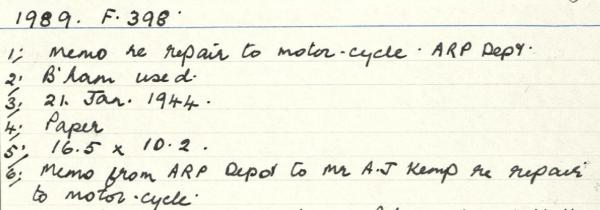 1989. F. 398.
1; Memo re repair to motor-cycle. ARP Dept.
2; B'ham used.
3; 21. Jan. 1944.
4; Paper
5; 16.5 x 10.2.
6; Memo from ARP Depot to Mr A.J Kemp re repair
to motor-cycle.